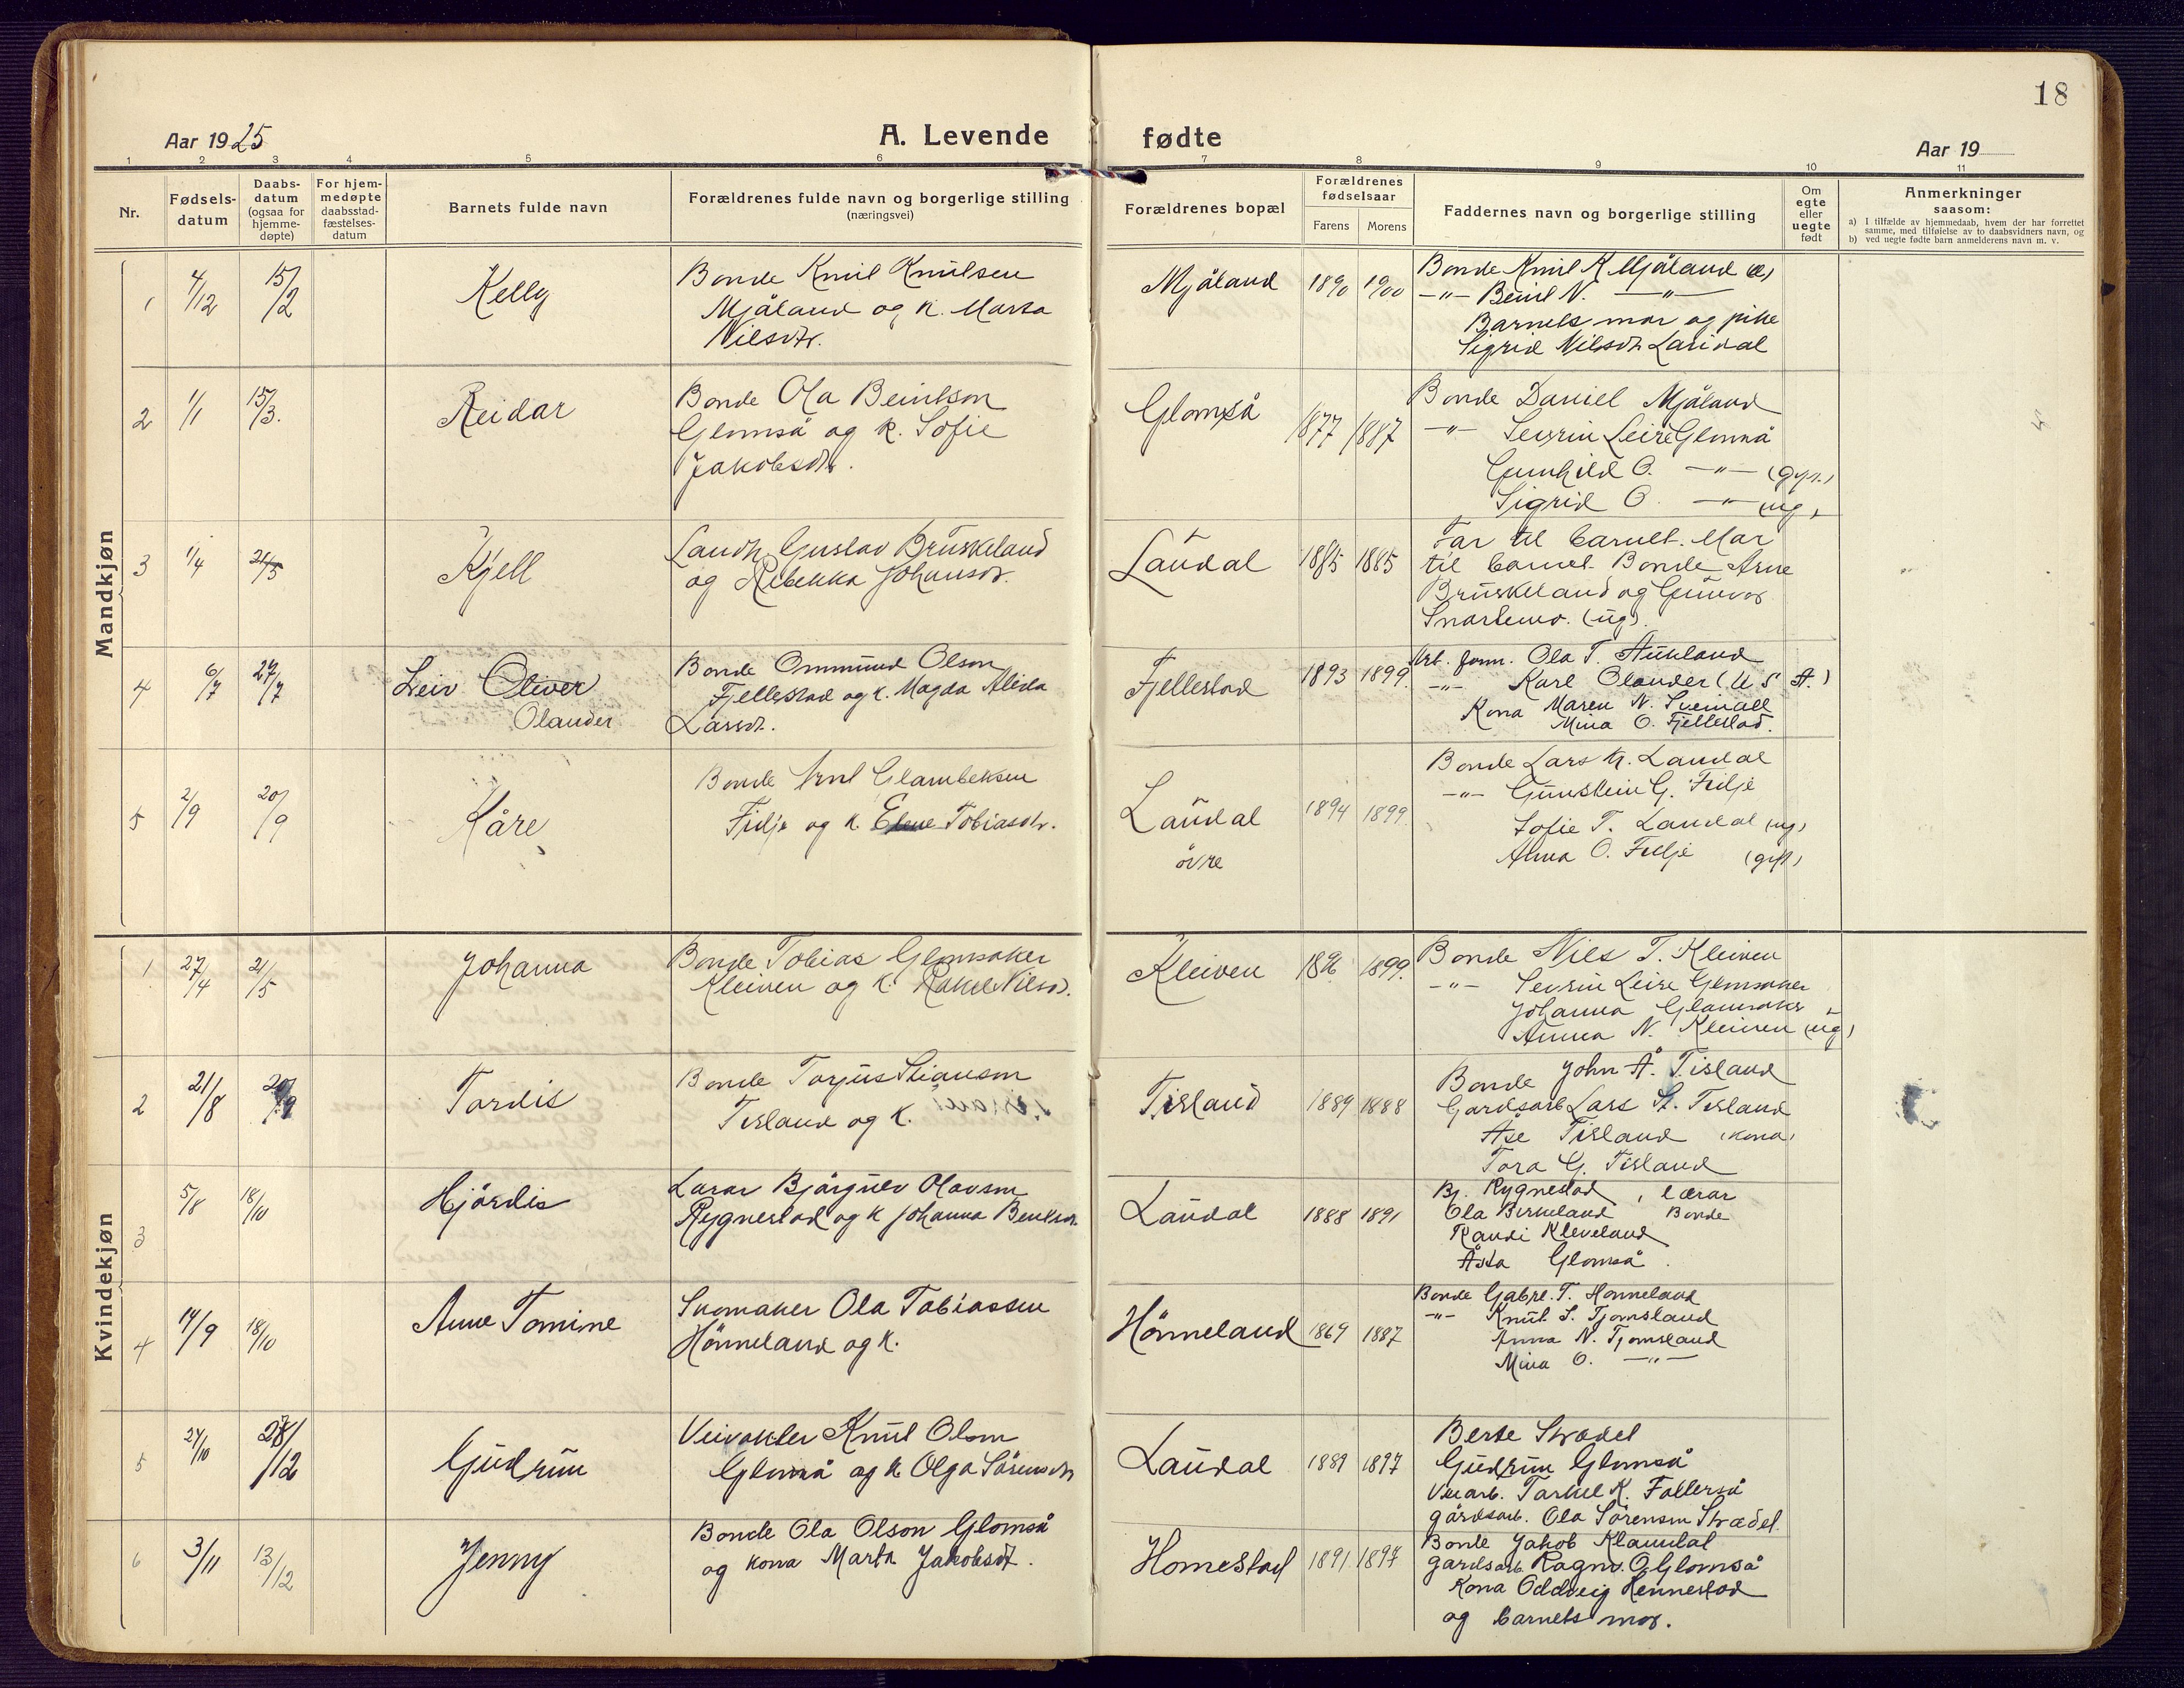 18
Aar 1925
A. Levende fødte
Aar 19
1 2 3 4 5 6 7 8 9 10 11
Nr.
Fødsels-
datum
Daabs-
datum
(ogsaa for
hjemme-
døpte)
For hjem-
medøpte
daabsstad-
fæstelses-
datum
Barnets fulde navn
Forældrenes fulde navn og borgerlige stilling
(næringsvei)
Forældrenes bopæl
Forældrenes
fødselsaar
Farens Morens
Faddernes navn og borgerlige stilling
Om
egte
eller
uegte
født
Anmerkninger
saasom:
a) I tilfælde av hjemmedaab, hvem der har forrettet
samme, med tilføielse av to daabsvidners navn, og
b) ved uegte fødte barn anmelderens navn m. v.
Mandkjøn
1 4/12 15/2 Kelly
Bonde Knut Knutsen
Mjåland og k. Marta
Nilsdtr.
Mjåland 1890 1900
Bonde Knut K Mjåland
-"- Beint N. -"-
Barnets mor og pike
Sigrid Nilsdtr Laudal
2 1/1 15/3. Reidar
Bonde Ola Beintson
Glomså og k. Sofie
Jakobsdtr.
Glomså 1877 1887
Bonde Daniel Mjåland
-"- Sevrin Leire Glomså
Gunhild O. -"- (gift)
Sigrid O. -"- (ug)
3 1/4 21/5 Kjell
Landh. Gustav Bruskeland
og Rebekka Johansdtr.
Laudal 1885 1885
Far til barnet. Mor
til barnet. Bonde Arne
Bruskeland og Gunvor
Snartemo. (ug).
4 6/7 27/7 Leiv Oliver
Olander
Bonde Ommund Olson
Fjellestad og k. Magda Alida
Larsdt.
Fjellestad 1893 1899.
Arb. form. Ola T. Aukland
-"- Karl Olander (U S A.)
Kona Maren N. Sveindll
Mina O. Fjellestad.
5 2/9 20/9 Kåre
Bonde Arnt Glambeksen
Fidje og k. Elene Tobiasdtr.
Laudal
övre
1894 1899.
Bonde Lars K. Laudal
-"- Gunstein G. Fidje
Sofie T. Laudal (ug)
Anna O. Fidje (gift)
Kvindekjøn
1 27/4 21/5 Johanna
Bonde Tobias Glomsaker
Kleiven og k. Rakel Nilsd.
Kleiven 1896 1899.
Bonde Nils T. Kleiven
-"- Sevrin Leire Glomsaker
Johanna Glomsaker
Anna N. Kleiven (ug)
2 21/8 20/9 Tordis
Bonde Torjus Stianson
Tisland og k.
Tisland 1889 1888
Bonde John Å. Tisland
Gardsarb Lars St. Tisland
Åse Tisland (kona)
Tora G. Tisland
3 5/8 18/10 Hjördis
Lærar Björgulv Olavson
Rygnestad og k Johanna Bentsdtr.
Laudal 1888 1891
Bj. Rygnestad, lærar
Ola Birkeland Bonde
Randi Kleveland
Åsta Glomså.
4 14/9 18/10 Anne Tomine
Skomaker Ola Tobiassen
Hönneland og k.
Hönneland 1869 1887
Bonde Gabrl. T. Hönneland
-"- Knut S. Tjomsland
Anna N. Tjomsland
Mina O. -"-
5 24/10 /12 Gudrun
Veivokter Knut Olson
Glomså og k Olga Sörensdtr
Laudal 1889 1897
Berte Strædet
Gudrun Glomså
Veiarb. Tarkel K. Follerså
gårdsarb. Ola Sörensen Strædet.
6 3/11 13/12 Jenny
Bonde Ola Olson Glomså
og kona Marta Jakobsdt.
Homestad 1891 1897
Bonde Jakob Klamdal
gardsarb. Ragnv. O Glomså
Kona Oddveig Hennestad
og barnets mor.